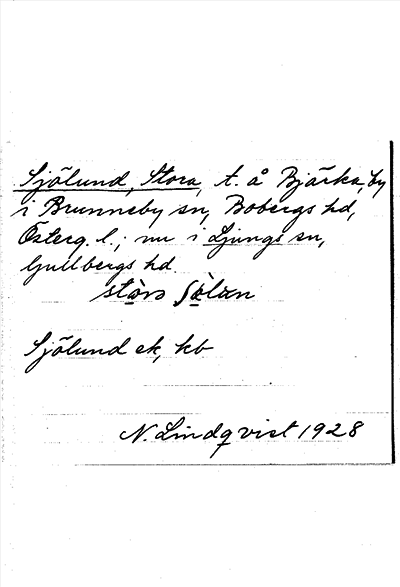 Sjölund, Stora, t. å Bjärka, by
i Brunneby sn, Bobergs hd,
Österg. l.; nu i Ljungs sn,
Gullbergs hd.
Sjölund ek, kb
N. Lindqvist 1928